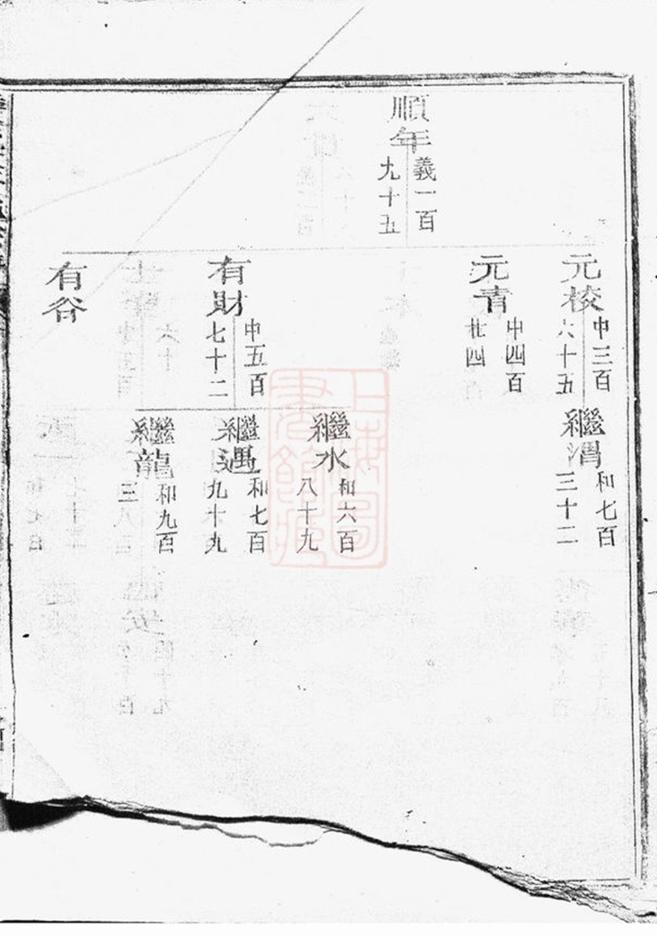 順年
義一百
九十五
元校
中三百
六十五
元青
中四百
廿四
有財
中五百
七十二
有谷
繼渭
和七百
三十二
繼水
和六百
八十九
繼遇
和七百
九十九
繼龍
和九百
上海圖
書館藏